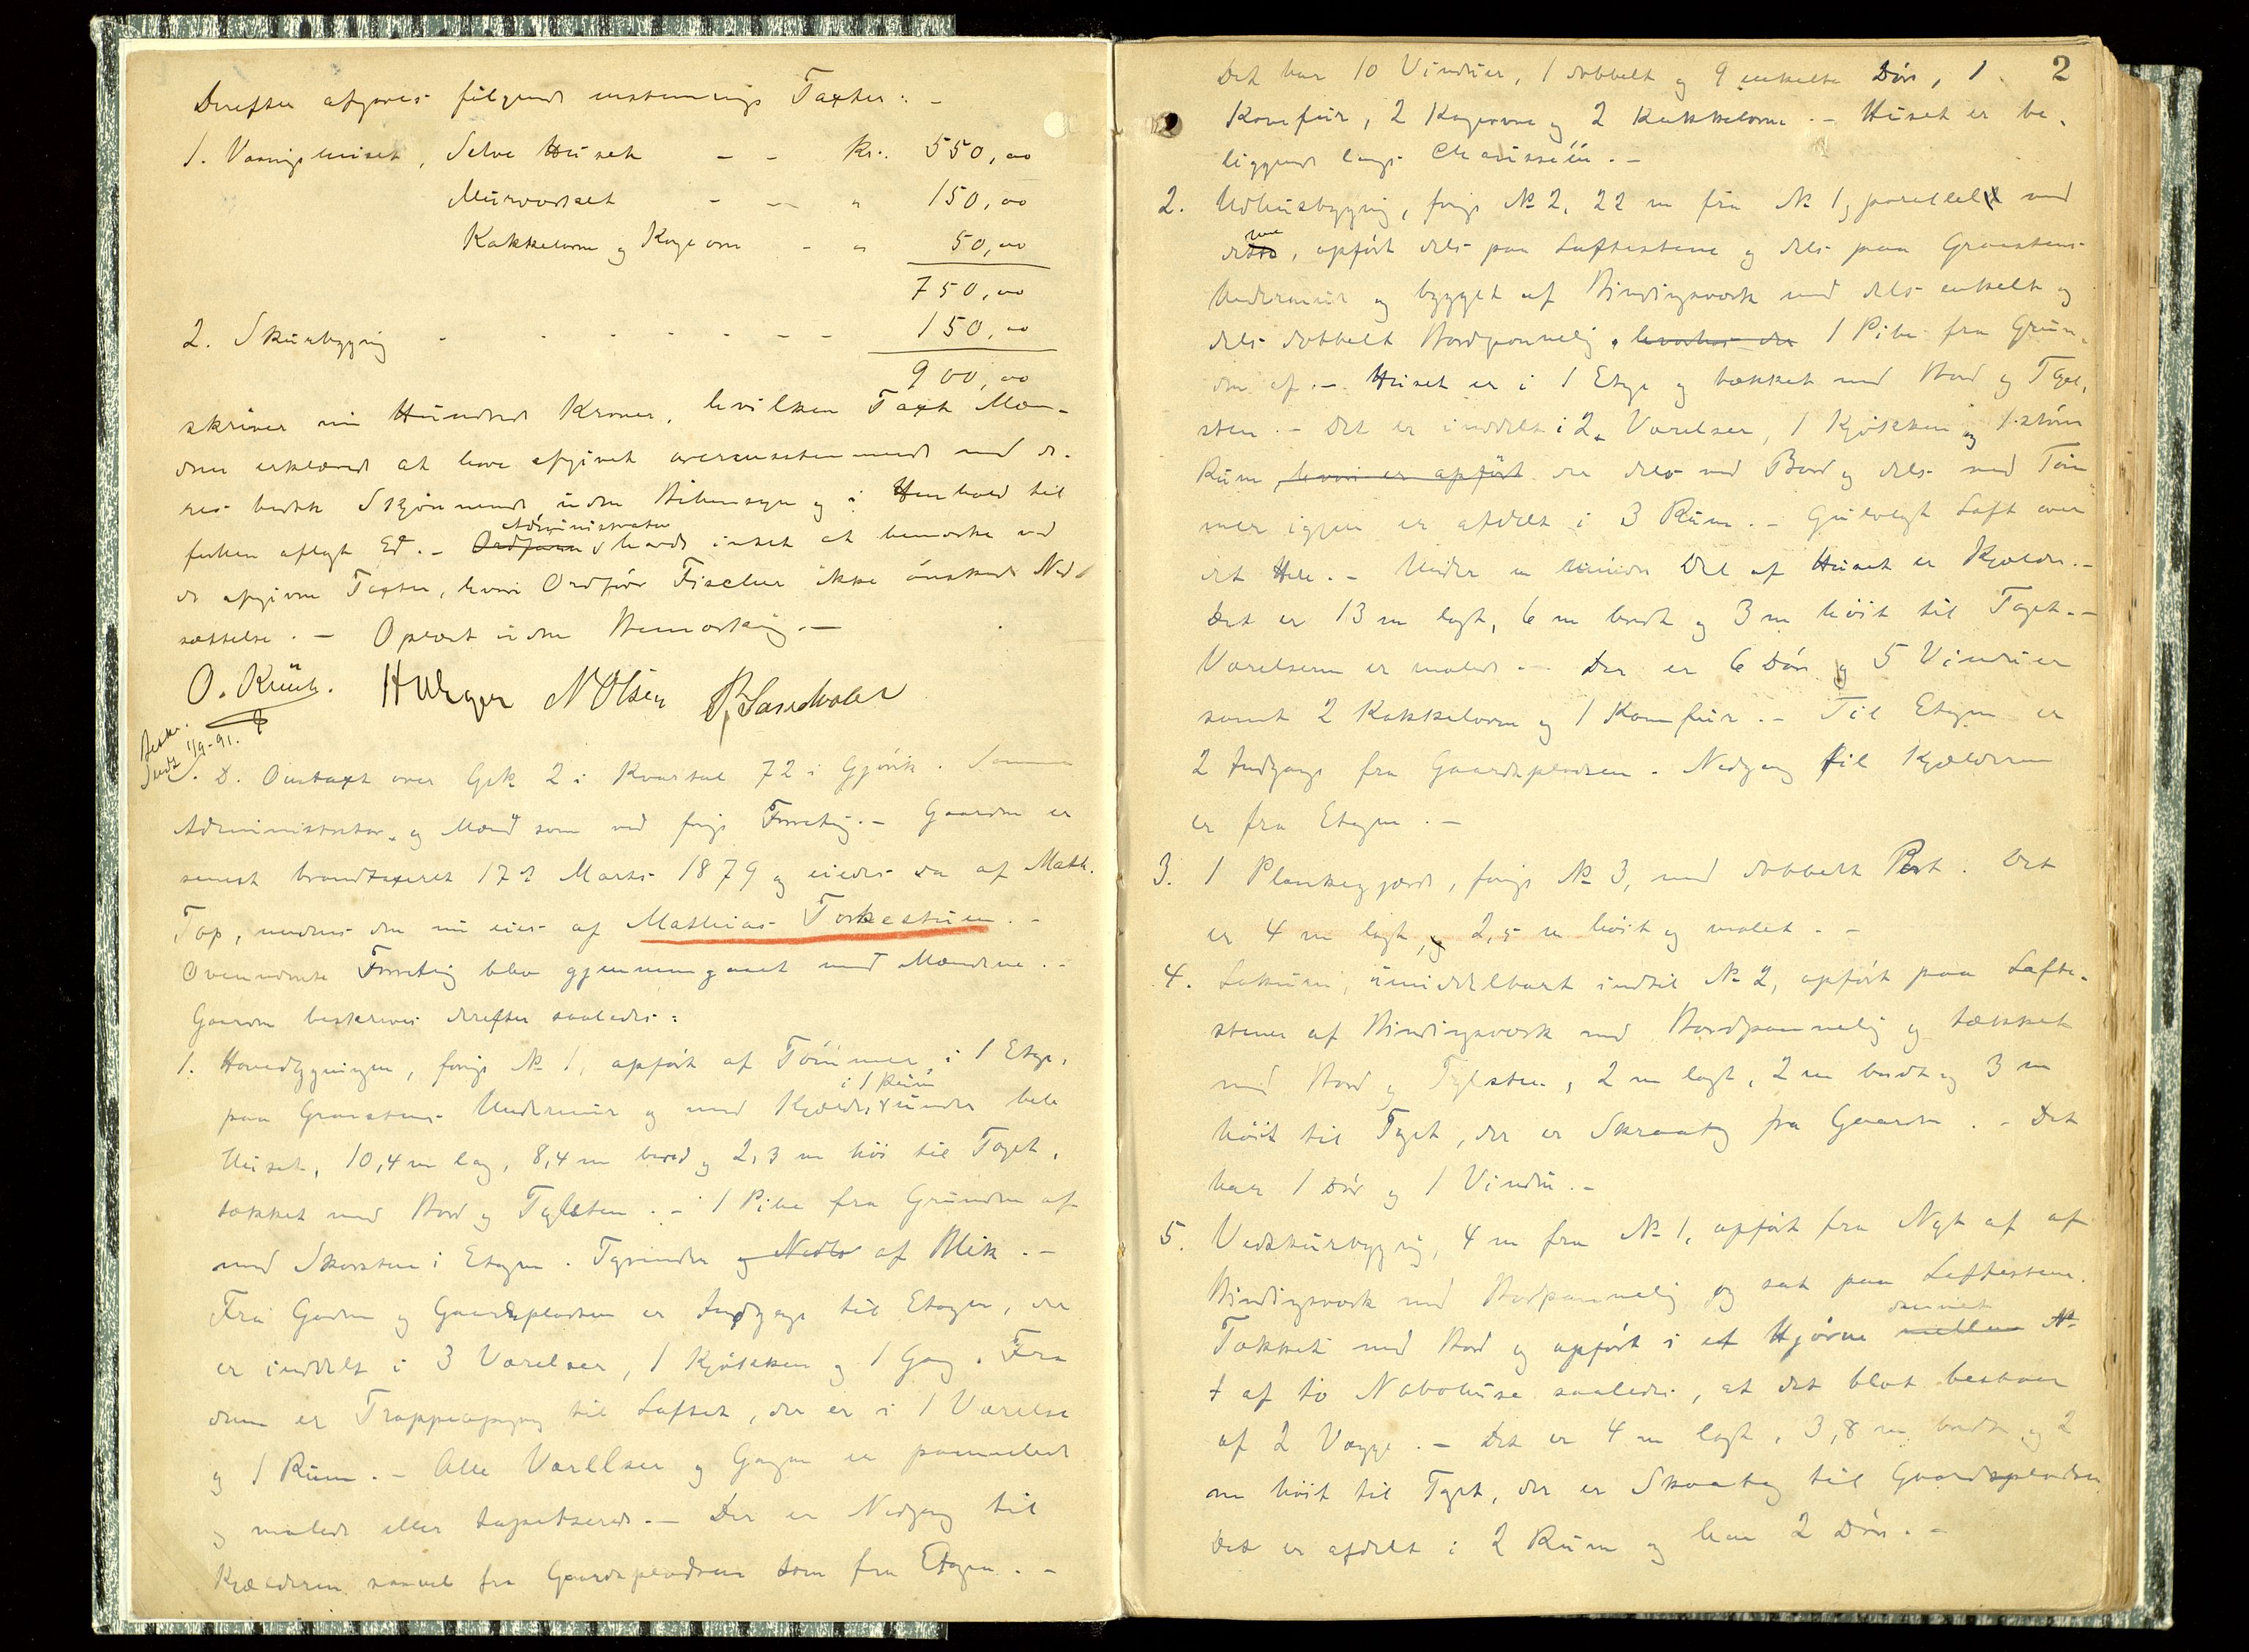 Derefter afgaves følgende enstemmige Taxter: -
1. Vaaningshuset, Selve Huset - - Kr. 550,00
Murværket - - " 150,00
Kakkelovne og Kogeovn - " 50,00
750,00
2. Skurbygning - - - - - - 150,00
900,00
skriver ni Hundrede Kroner, hvilken Taxt Mæn-
dene erklærede at have afgivet overensstemmende med de-
res bedste Skjønnende uden Bihensyn og i Henhold til
forhen aflagt Ed. - Administrator havde intet at bemærke ved
de afgivne Taxter, hvori Ordfører Fischer ikke ønskede Ned-
sættelse. - Oplæst uden Bemærkning. -
O. Krüch. H Unger N Olsen P. Sandvolden
1/9-91.
S. D. Omtaxt over Grk 2 i Kvartal 72 i Gjøvik. Samme
Administrator og Mænd som ved forrige Forretning. - Gaarden er
senest brandtaxeret 17de Marts 1879 og eiedes da af Math.
Top, medens den nu eies af Mathias Torkestuen. -
Ovennævnte Forretning blev gjennemgaaet med Mændene. -
Gaarden beskrives derefter saaledes:
1. Hovedbygningen, forrige № 1, opført af Tømmer i 1 Etage,
i 1 Rum
paa Graastens Undermur og med Kjælder under hele
Huset, 10,4 m lang, 8,4 m bred og 2,3 m høi til Taget,
tækket med Bord og Taglsten. - 1 Pibe fra Grunden af
med Skorsten i Etagen. Tagrender og Nedlø af Blik. -
Fra Gaden og Gaardspladsen er Indgange til Etagen, der
er inddelt i 3 Værelser, 1 Kjøkken og 1 Gang. Fra
denne er Trappeopgang til Loftet, der er i 1 Værelse
og 1 Rum. - Alle Værelser og Gangen er pannelede
og malede eller tapetserede. - Der er Nedgang til
Kjælderen saavel fra Gaardspladsen som fra Etagen. -
2
Det har 10 Vinduer, 1 dobbelt og 9 enkelte Døre, 1
Komfur, 2 Kogeovne og 2 Kakkelovne. - Huset er be-
liggende langs Chausséen. -
2. Udhusbygning, forrige № 2, 22 m fra № 1 og parallel med
denne, opført dels paa Løftestene og dels paa Graastens
Undermur og bygget af Bindingsværk med dels enkelt og
dels dobbelt Bordpanneling, hvorhos der 1 Pibe fra Grun-
den af. - Huset er i 1 Etage og tækket med Bord og Tagl-
sten. - Det er inddelt i 2 Værelser, 1 Kjøkken og 1 større
Rum, hvori er opført der dels ved Bord og dels ved Tøm-
mer igjen er afdelt i 3 Rum. - Gulvlagt Loft over
det Hele. - Under en mindre Del af Huset er Kjælder. -
Det er 13 m langt, 6 m bredt og 3 m høit til Taget. -
Værelserne er malede. - Der er 6 Døre og 5 Vinduer
samt 2 Kakkelovne og 1 Komfur. - Til Etagen er
2 Indgange fra Gaardspladsen. Nedgang til Kjælderen
er fra Etagen. -
3. 1 Plankegjærde, forrige № 3, med dobbelt Port. Det
er 4 m langt, og 2,5 m høit og malet. -
4. Lokum, umiddelbart indtil № 2, opført paa Løfte-
stener af Bindingsværk med Bordpanneling og tækket
med Bord og Taglsten, 2 m langt, 2 m bredt og 3 m
høit til Taget, der er Skraatag fra Gaarden. - Det
har 1 Dør og 1 Vindu. -
5. Vedskurbygning, 4 m fra № 1, opført fra Nyt af af
Bindingsværk med Bordpanneling og sat paa Løftestene.
Tækket med Bord og opført i et Hjørne dannet mellem №
1 af to Nabohuse saaledes, at det blot bestaar
af 2 Vægge. - Det er 4 m langt, 3,8 m bredt og 2
m høit til Taget, der er Skraatag til Gaardspladsen
Det er afdelt i 2 Rum og har 2 Døre. -